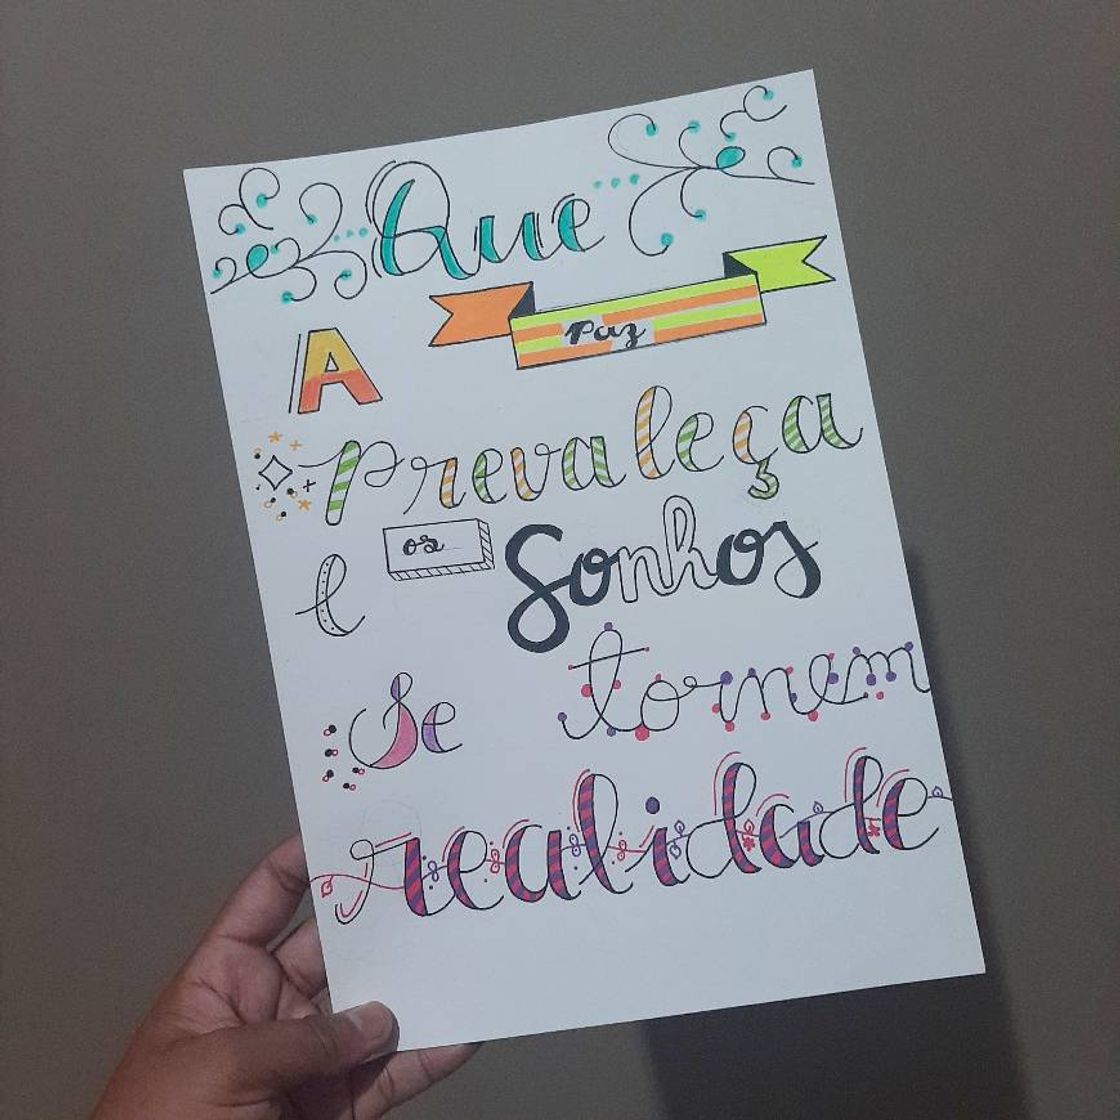 Que
A Paz
Prevaleça
e os Sonhos
Se tornem
realidade